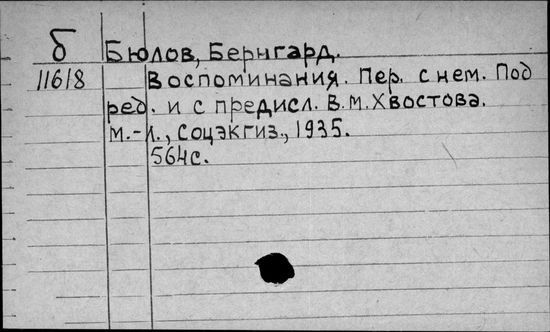 б
Бюлов, Бернгард.
11618
Воспоминания. Пер. с нем. Под
ред. и с предисл. В.М.Хвостова.
М.-Л., Соцэкгиз., 1935.
564с.